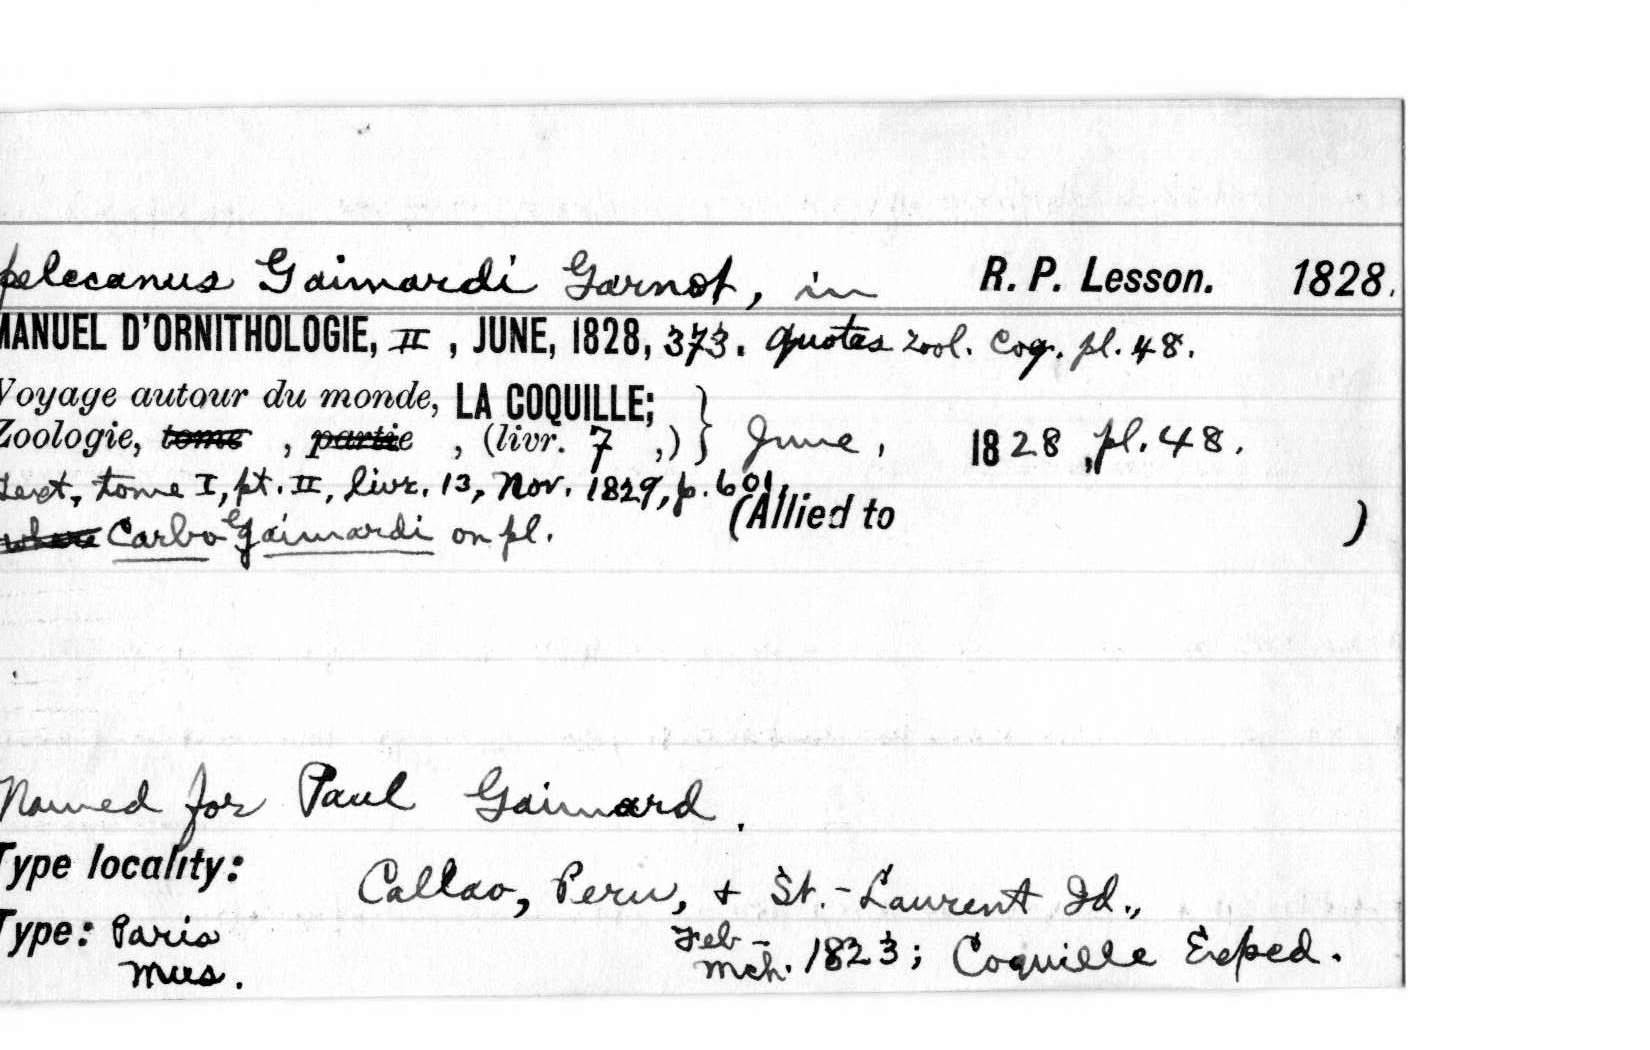 pelecanus Gaimardi Garnot, in R. P. Lesson. 1828.
MANUEL D'ORNITHOLOGIE, II , JUNE, 1828, 373. quotes Zool. Coq. pl. 48.
Voyage autour du monde, LA COQUILLE;
Zoologie, tome , partie , (livr. 7 ,) } June, 1828, pl. 48.
Text, tome I, pt. II, livr. 13, Nov. 1829, p. 601.
(Allied to )
where Carbo Gaimardi on pl.
Named for Paul Gaimard.
Type locality:
Callao, Peru, + St.-Laurent Id.,
Type: Paris Mus.
Feb - Mch. 1823; Coquille Exped.